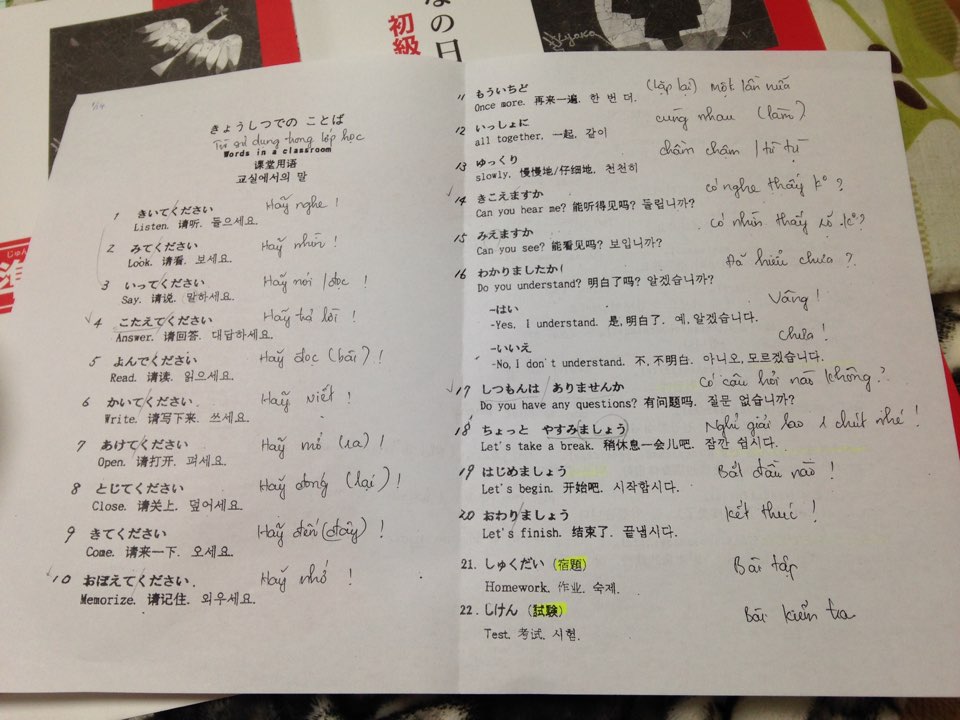 なの日
初級
Kyoko
じゅん
準
1/14
きょうしつでの ことば
Từ sử dụng trong lớp học
Words in a classroom
课堂用语
교실에서의 말
1 きいてください Haỹ nghe !
Listen. 请听. 들으세요.
2 みてください Haỹ nhìn !
Look. 请看. 보세요.
3 いってください Haỹ nói / đọc !
Say. 请说. 말하세요.
4 こたえてください Haỹ trả lời !
Answer. 请回答. 대답하세요.
5 よんでください Haỹ đọc (bài) !
Read. 请读. 읽으세요.
6 かいてください Haỹ viết !
Write. 请写下来. 쓰세요.
7 あけてください Haỹ mở (ra) !
Open. 请打开. 펴세요.
8 とじてください Haỹ đóng (lại) !
Close. 请关上. 덮어세요.
9 きてください Haỹ đến (đây) !
Come. 请来一下. 오세요.
10 おぼえてください. Haỹ nhớ !
Memorize. 请记住. 외우세요.
11 もういちど (lặp lại) một lần nữa
Once more. 再来一遍. 한 번 더.
12 いっしょに cùng nhau (làm)
all together. 一起. 같이
13 ゆっくり chầm chậm / từ từ
slowly. 慢慢地/仔细地. 천천히
14 きこえますか có nghe thấy kº ?
Can you hear me? 能听得见吗? 들립니까?
15 みえますか Có nhìn thấy rõ kº ?
Can you see? 能看见吗? 보입니까?
16 わかりましたか Đã hiểu chưa ?
Do you understand? 明白了吗? 알겠습니까?
-はい Vâng !
-Yes, I understand. 是,明白了. 예,알겠습니다.
-いいえ chưa !
-No,I don't understand. 不,不明白. 아니오,모르겠습니다.
17 しつもんは ありませんか Có câu hỏi nào không ?
Do you have any questions? 有问题吗. 질문 없습니까?
18 ちょっと やすみましょう Nghỉ giải lao 1 chút nhé !
Let's take a break. 稍休息一会儿吧. 잠깐 쉽시다.
19 はじめましょう Bắt đầu nào !
Let's begin. 开始吧. 시작합시다.
20 おわりましょう kết thúc !
Let's finish. 结束了. 끝냅시다.
21. しゅくだい (宿題) Bài tập
Homework. 作业. 숙제.
22. しけん (試験) Bài kiểm tra
Test. 考试. 시험.